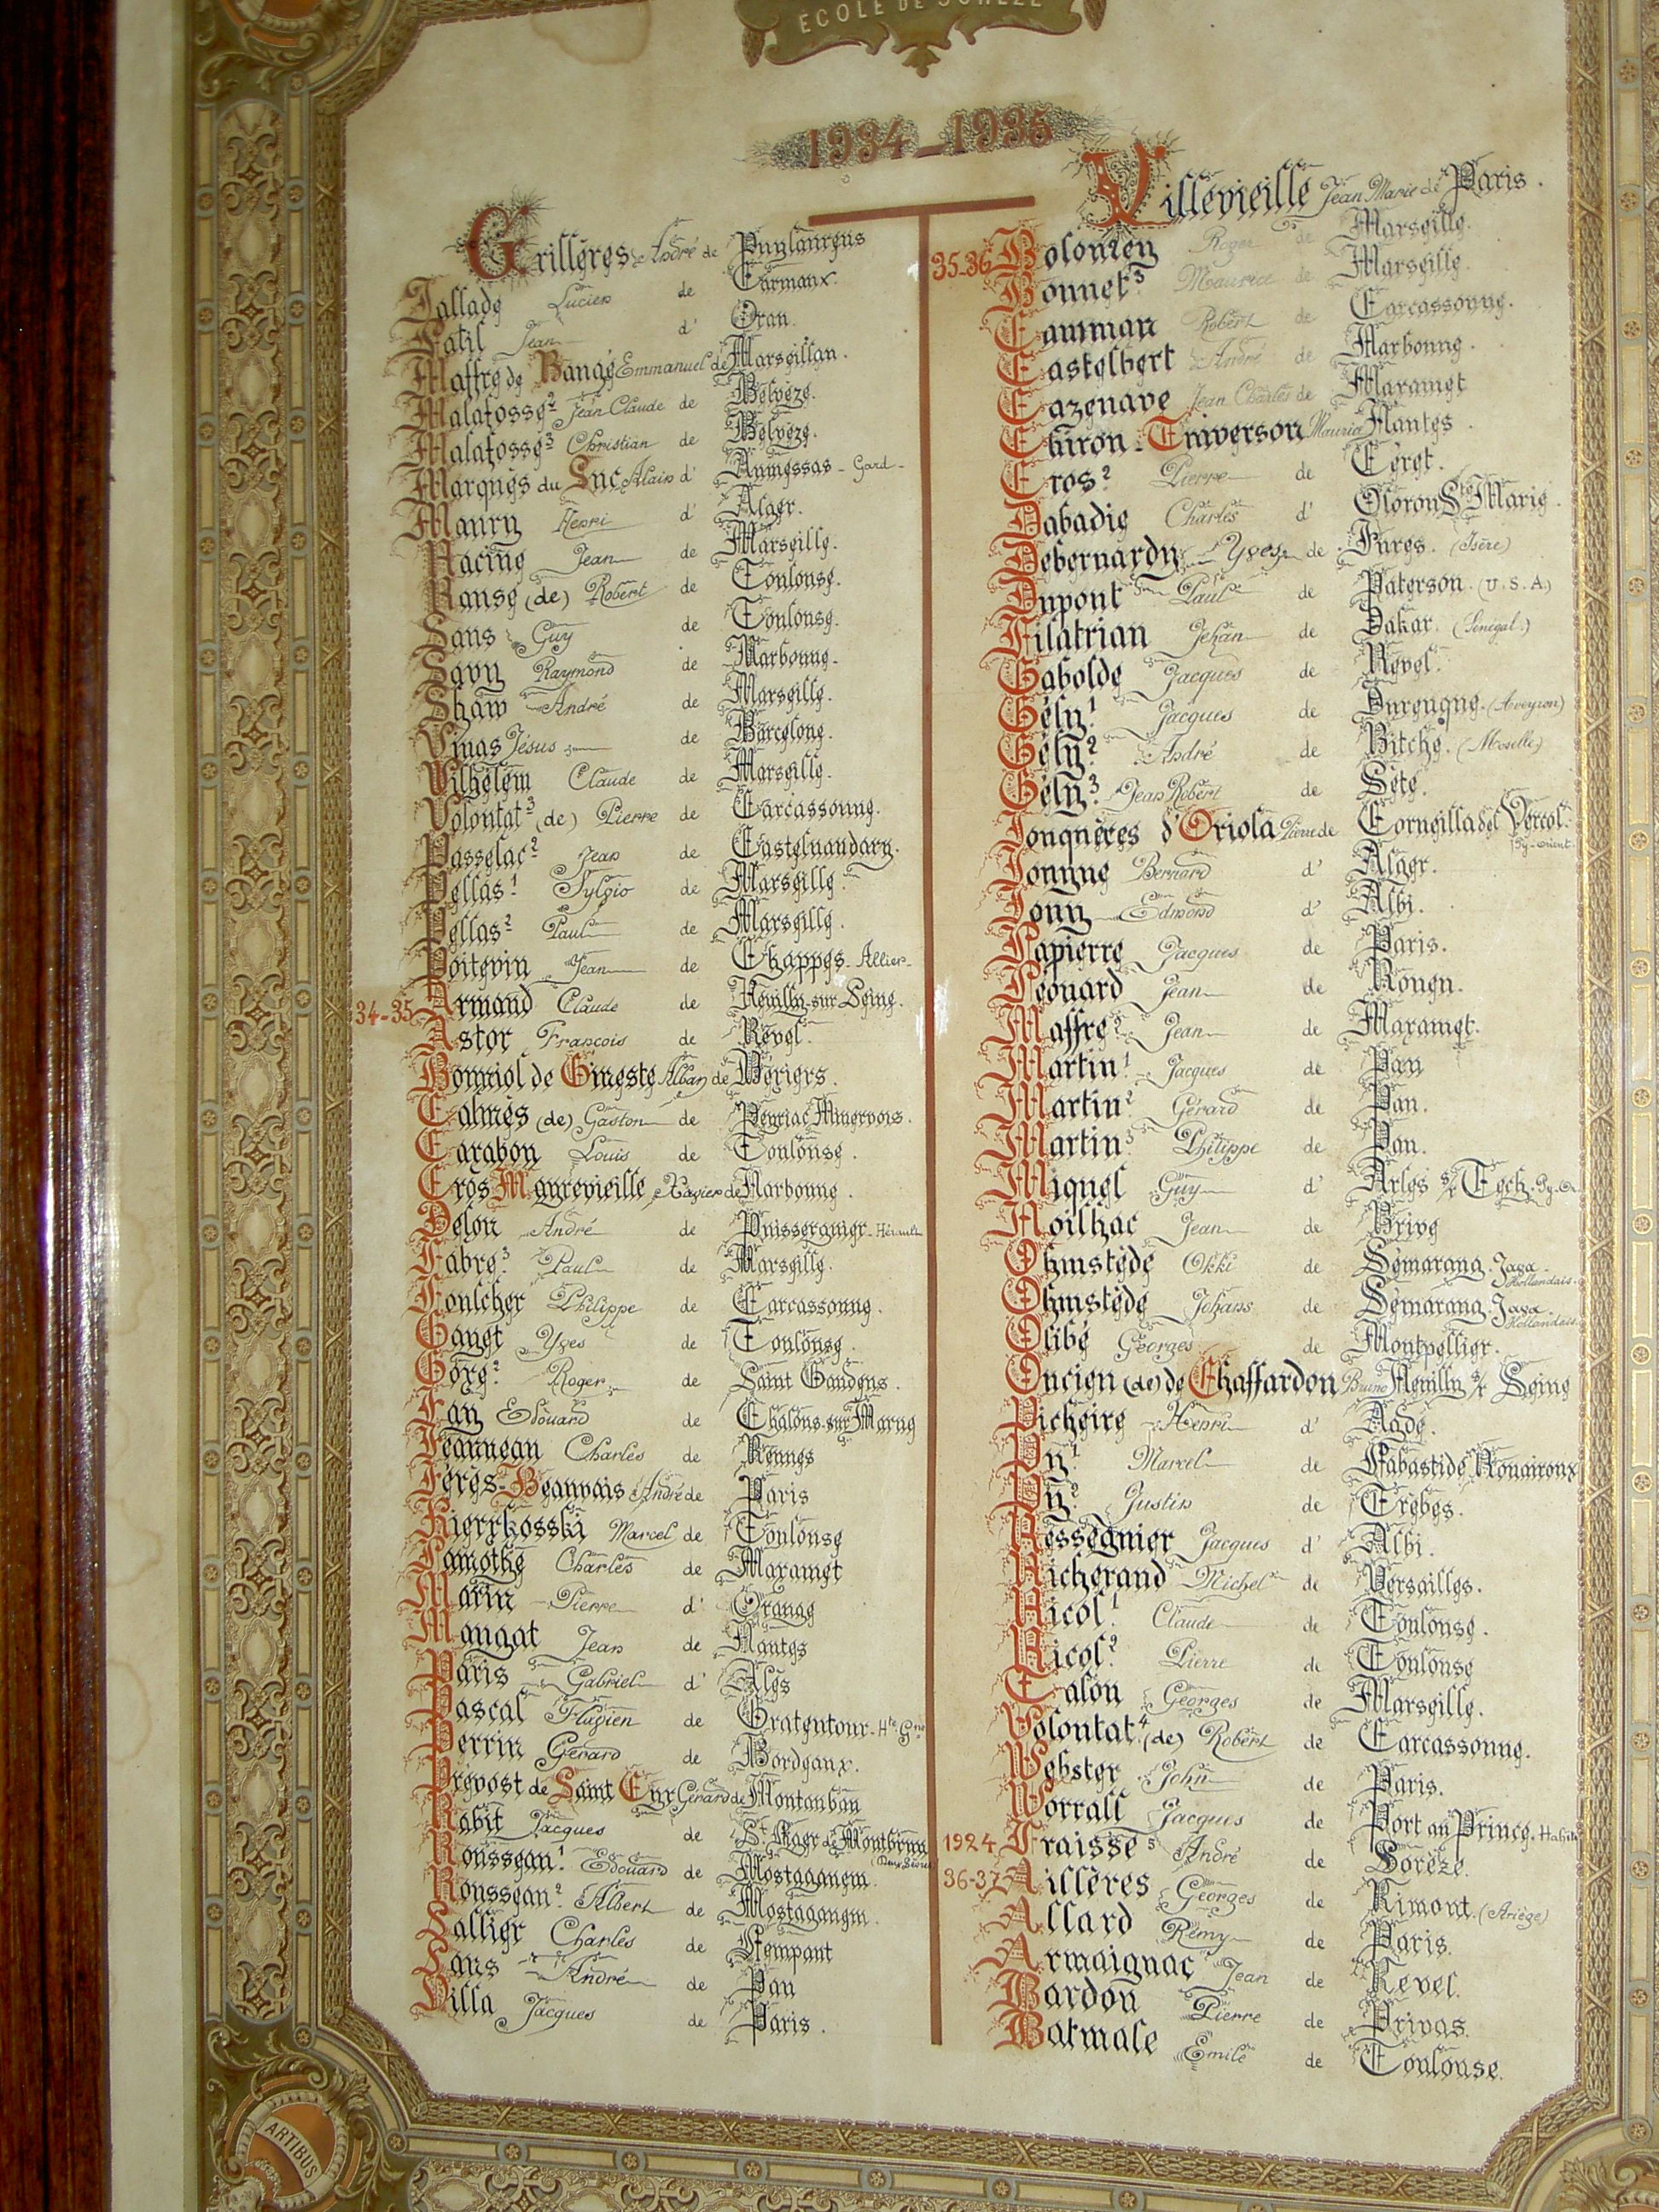 ÉCOLE DE SORÈZE
1934-1935
Grillères André de Puylaurens
Jallade Lucien de Carmaux.
Latil Jean d' Oran.
Maffre de Banage Emmanuel de Marseillan.
Malafosse 2 Jean Claude de Belvèze.
Malafosse 3 Christian de Belvèze.
Marquès du Luc Alain d' Aumessas - Gard -
Maury Henri d' Alger.
Racine Jean de Marseille.
Ranse (de) Robert de Toulouse.
Sans Guy de Toulouse.
Savy Raymond de Narbonne.
Shaw André de Marseille.
Vinas Jésus de Barcelone.
Wilhelem Claude de Marseille.
Volontat 3 (de) Pierre de Carcassonne.
Passelac 2 Jean de Castelnaudary.
Pellas 1 Sylvio de Marseille.
Pellas 2 Paul de Marseille.
Poitevin Jean de Chappes - Allier -
34-35 Armand Claude de Neuilly-sur-Seine.
Astor François de Revel.
Bonniol de Gineste Alban de Béziers.
Calmès (de) Gaston de Peyriac Minervois.
Carabon Louis de Toulouse.
Cros Mayrevieille Xavier de Narbonne.
Delon André de Puisserguier - Hérault
Fabre 3 Paul de Marseille.
Foulcher Philippe de Carcassonne.
Ganet Yves de Toulouse.
Gorg 2 Roger de Saint Gaudens.
Jay Edouard de Châlons-sur-Marne
Jeannean Charles de Rennes
Jérès-Beauvais André de Paris
Kierzkosski Marcel de Toulouse
Lamothe Charles de Mazamet
Marin Pierre d' Orange
Maugat Jean de Nantes
Paris Gabriel d' Alès
Pascal Flavien de Gratentour - Hte Gne
Perrin Gérard de Bordeaux.
Prévost de Saint Cyr Gérard de Montauban
Rabit Jacques de St Léger de Montbrun (Deux Sèvres
Rousseau 1 Edouard de Mostaganem.
Rousseau 2 Albert de Mostaganem.
Sallier Charles de Lempaut
Sans André de Pau
Villa Jacques de Paris.
Villevieille Jean Marie de Paris.
35-36 Bolomey Roger de Marseille.
Bonnet 3 Maurice de Marseille.
Camman Robert de Carcassonne.
Castelbert André de Narbonne.
Cazenave Jean Charles de Mazamet
Chiron-Triverson Maurice Nantes.
Cros 2 Pierre de Céret.
Dabadie Charles d' Oloron Ste Marie.
Debernardy Yves de Jures. (Isère)
Dupont Paul de Paterson. (U.S.A)
Filatrian Jehan de Dakar. (Sénégal.)
Gabolde Jacques de Revel.
Gély 1 Jacques de Durenque. (Aveyron)
Gély 2 André de Bitche. (Moselle)
Gély 3 Jean Robert de Sète.
Jonquères d'Oriola Pierre de Corneilla del Vercol. Py-Orient.
Jouyne Bernard d' Alger.
Jouy Edmond d' Albi.
Lapierre Jacques de Paris.
Léonard Jean de Rouen.
Maffre 2 Jean de Mazamet.
Martin 1 Jacques de Pau
Martin 2 Gérard de Pau.
Martin 3 Philippe de Pau.
Miquel Guy d' Arles s/r Tech - Py-Or.
Noilhac Jean de Brive
Ohmstède Okki de Sémarang Java - Hollandais.
Ohmstède Johans de Sémarang Java - Hollandais.
Olibé Georges de Montpellier.
Oncieu (de) de Chaffardon Bruno Neuilly s/r Seine
Picheire Henri d' Agde.
Py 1 Marcel de Labastide Rouairoux
Py 2 Justin de Trèbes.
Resseguier Jacques d' Albi.
Richerand Michel de Versailles.
Ricol 1 Claude de Toulouse.
Ricol 2 Pierre de Toulouse
Talon Georges de Marseille.
Volontat 4 (de) Robert de Carcassonne.
Webster John de Paris.
Worrall Jacques de Port au Prince. Haïti
1924 Fraisse 5 André de Sorèze.
36-37 Aillères Georges de Rimont. (Ariège)
Allard Rémy de Paris.
Armaignac Jean de Revel.
Bardon Pierre de Privas.
Batmale Emile de Toulouse.
ARTIBUS